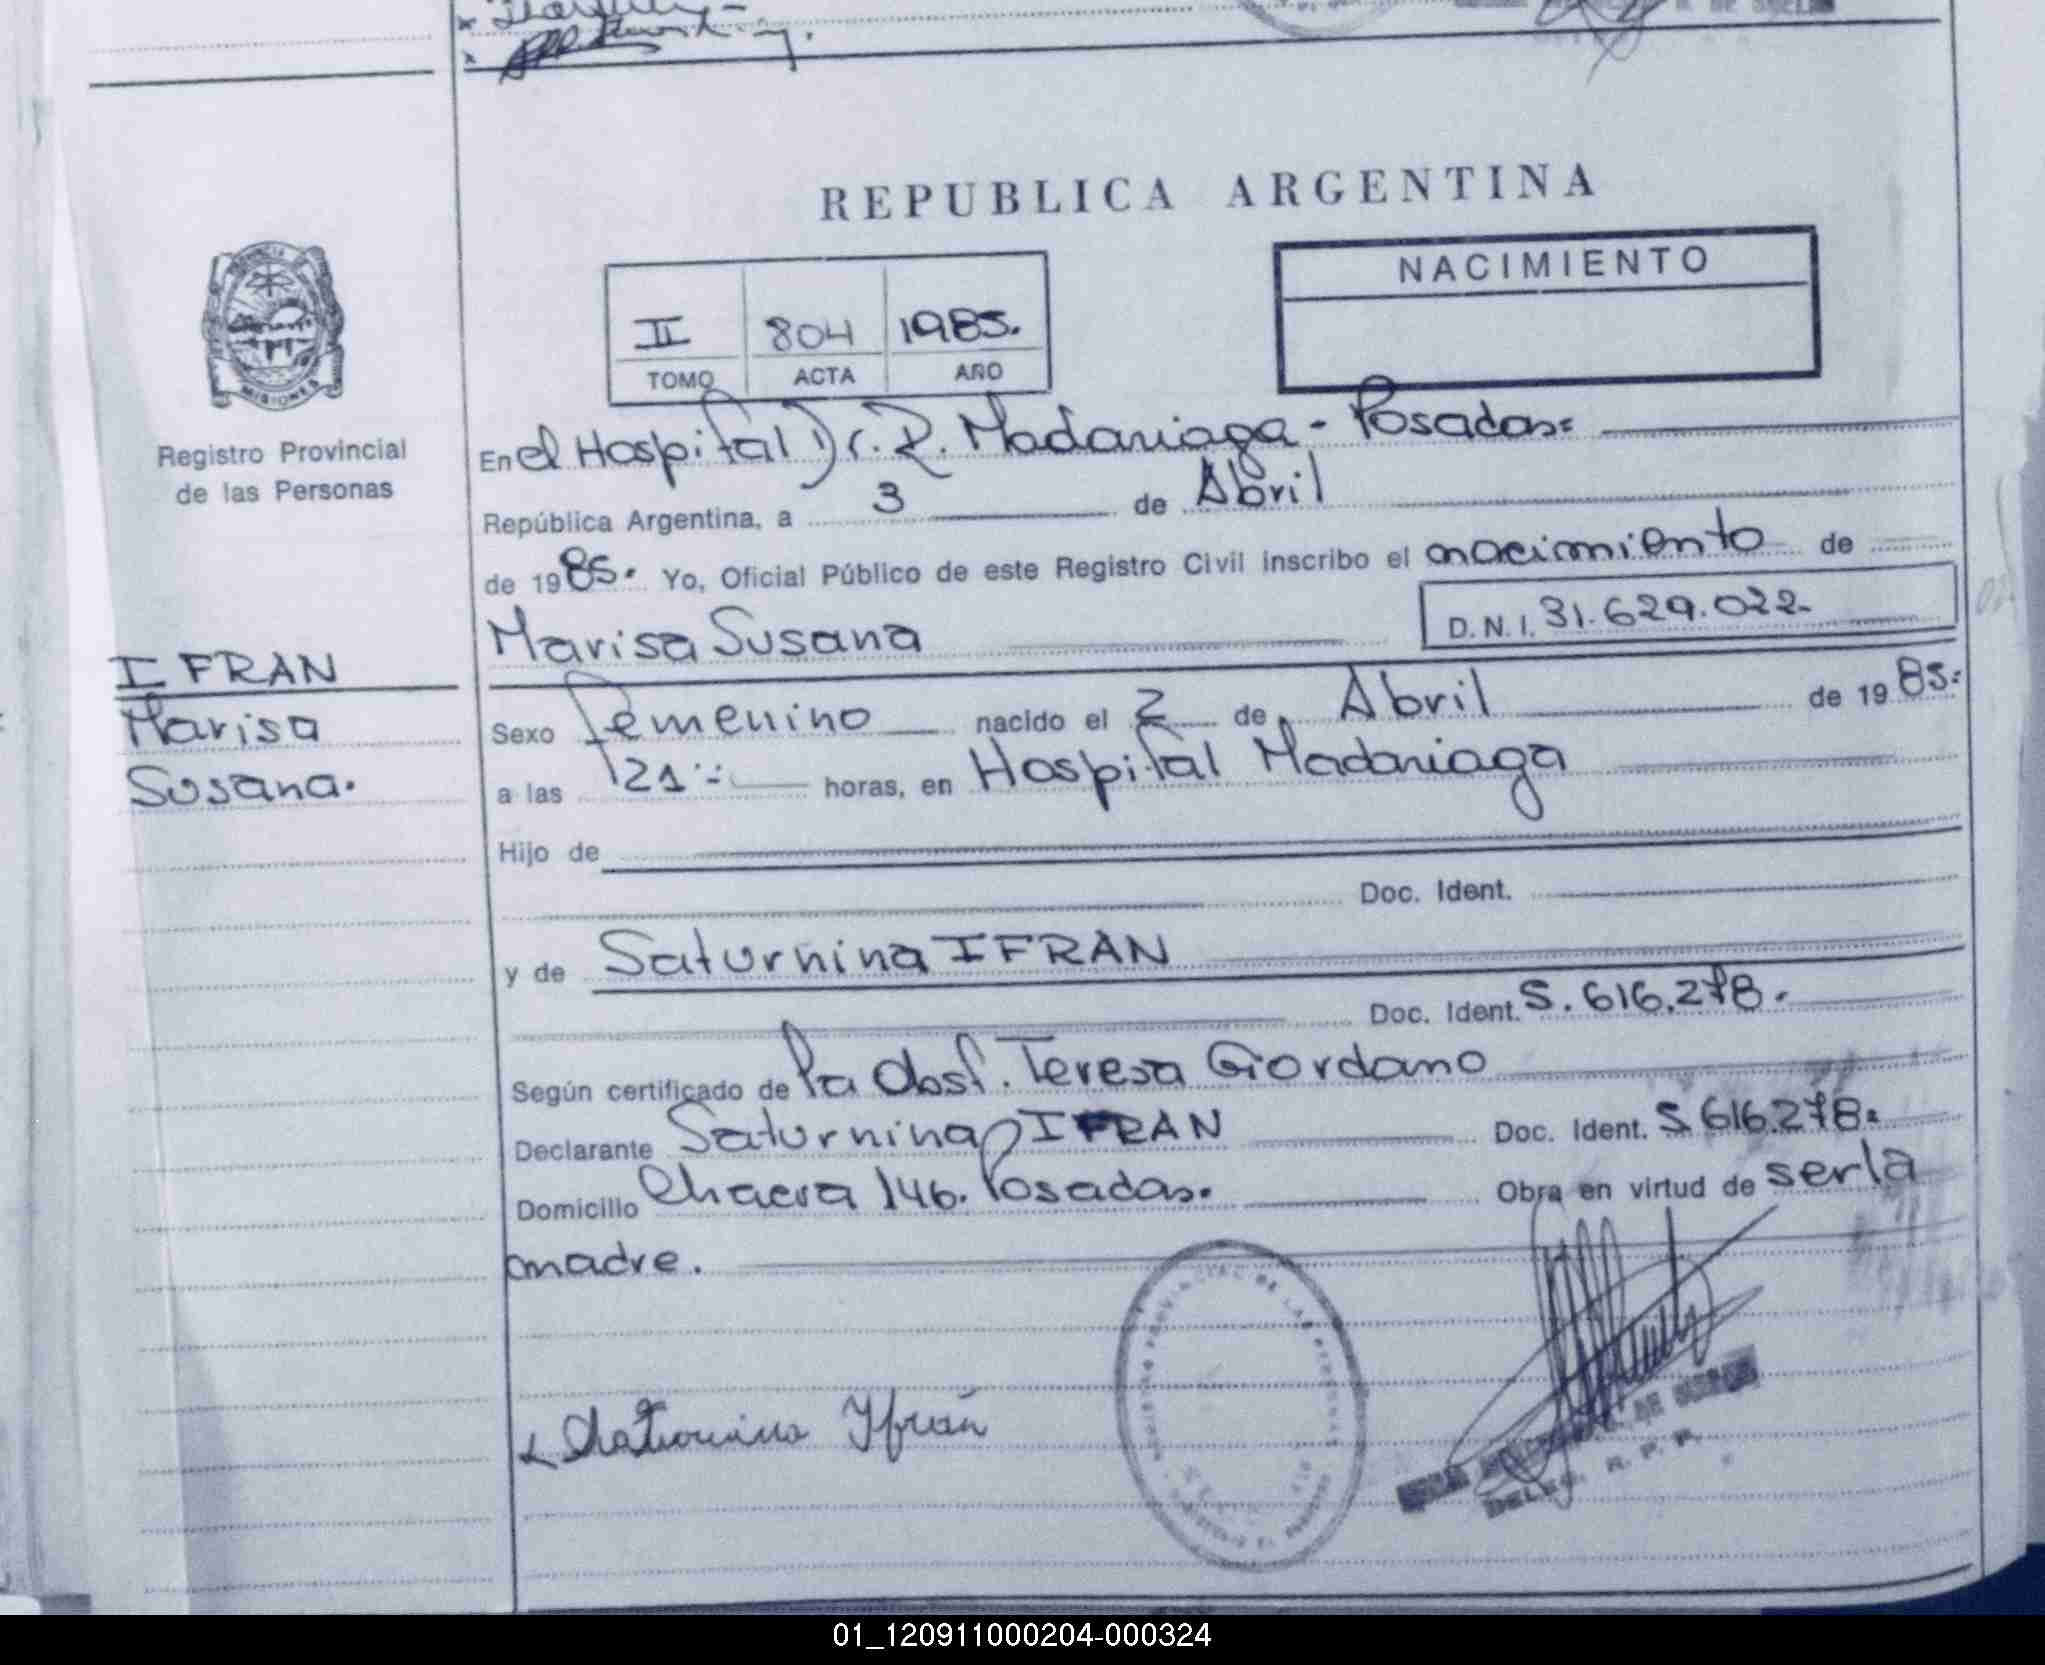 REPUBLICA ARGENTINA
PROVINCIA
MISIONES
Registro Provincial
de las Personas
II 804 1985.
TOMO ACTA AÑO
NACIMIENTO
En el Hospital Dr. R. Madariaga - Posadas=
República Argentina, a 3 de Abril
de 1985. Yo, Oficial Público de este Registro Civil inscribo el nacimiento de
Marisa Susana D.N.I. 31.629.022-
IFRAN
Marisa
Susana.
Sexo femenino nacido el 2 de Abril de 1985.
a las 21:- horas, en Hospital Madariaga
Hijo de
Doc. Ident.
y de Saturnina IFRAN
Doc. Ident. 5.616.278.
Según certificado de la Obst. Teresa Giordano
Declarante Saturnina IFRAN Doc. Ident. 5.616.278.
Domicilio Chacra 146. Posadas. Obra en virtud de ser la
madre.
x Saturnina Yfrán
REGISTRO PROVINCIAL DE LAS PERSONAS
DELEG. R. P. P.
01_120911000204-000324